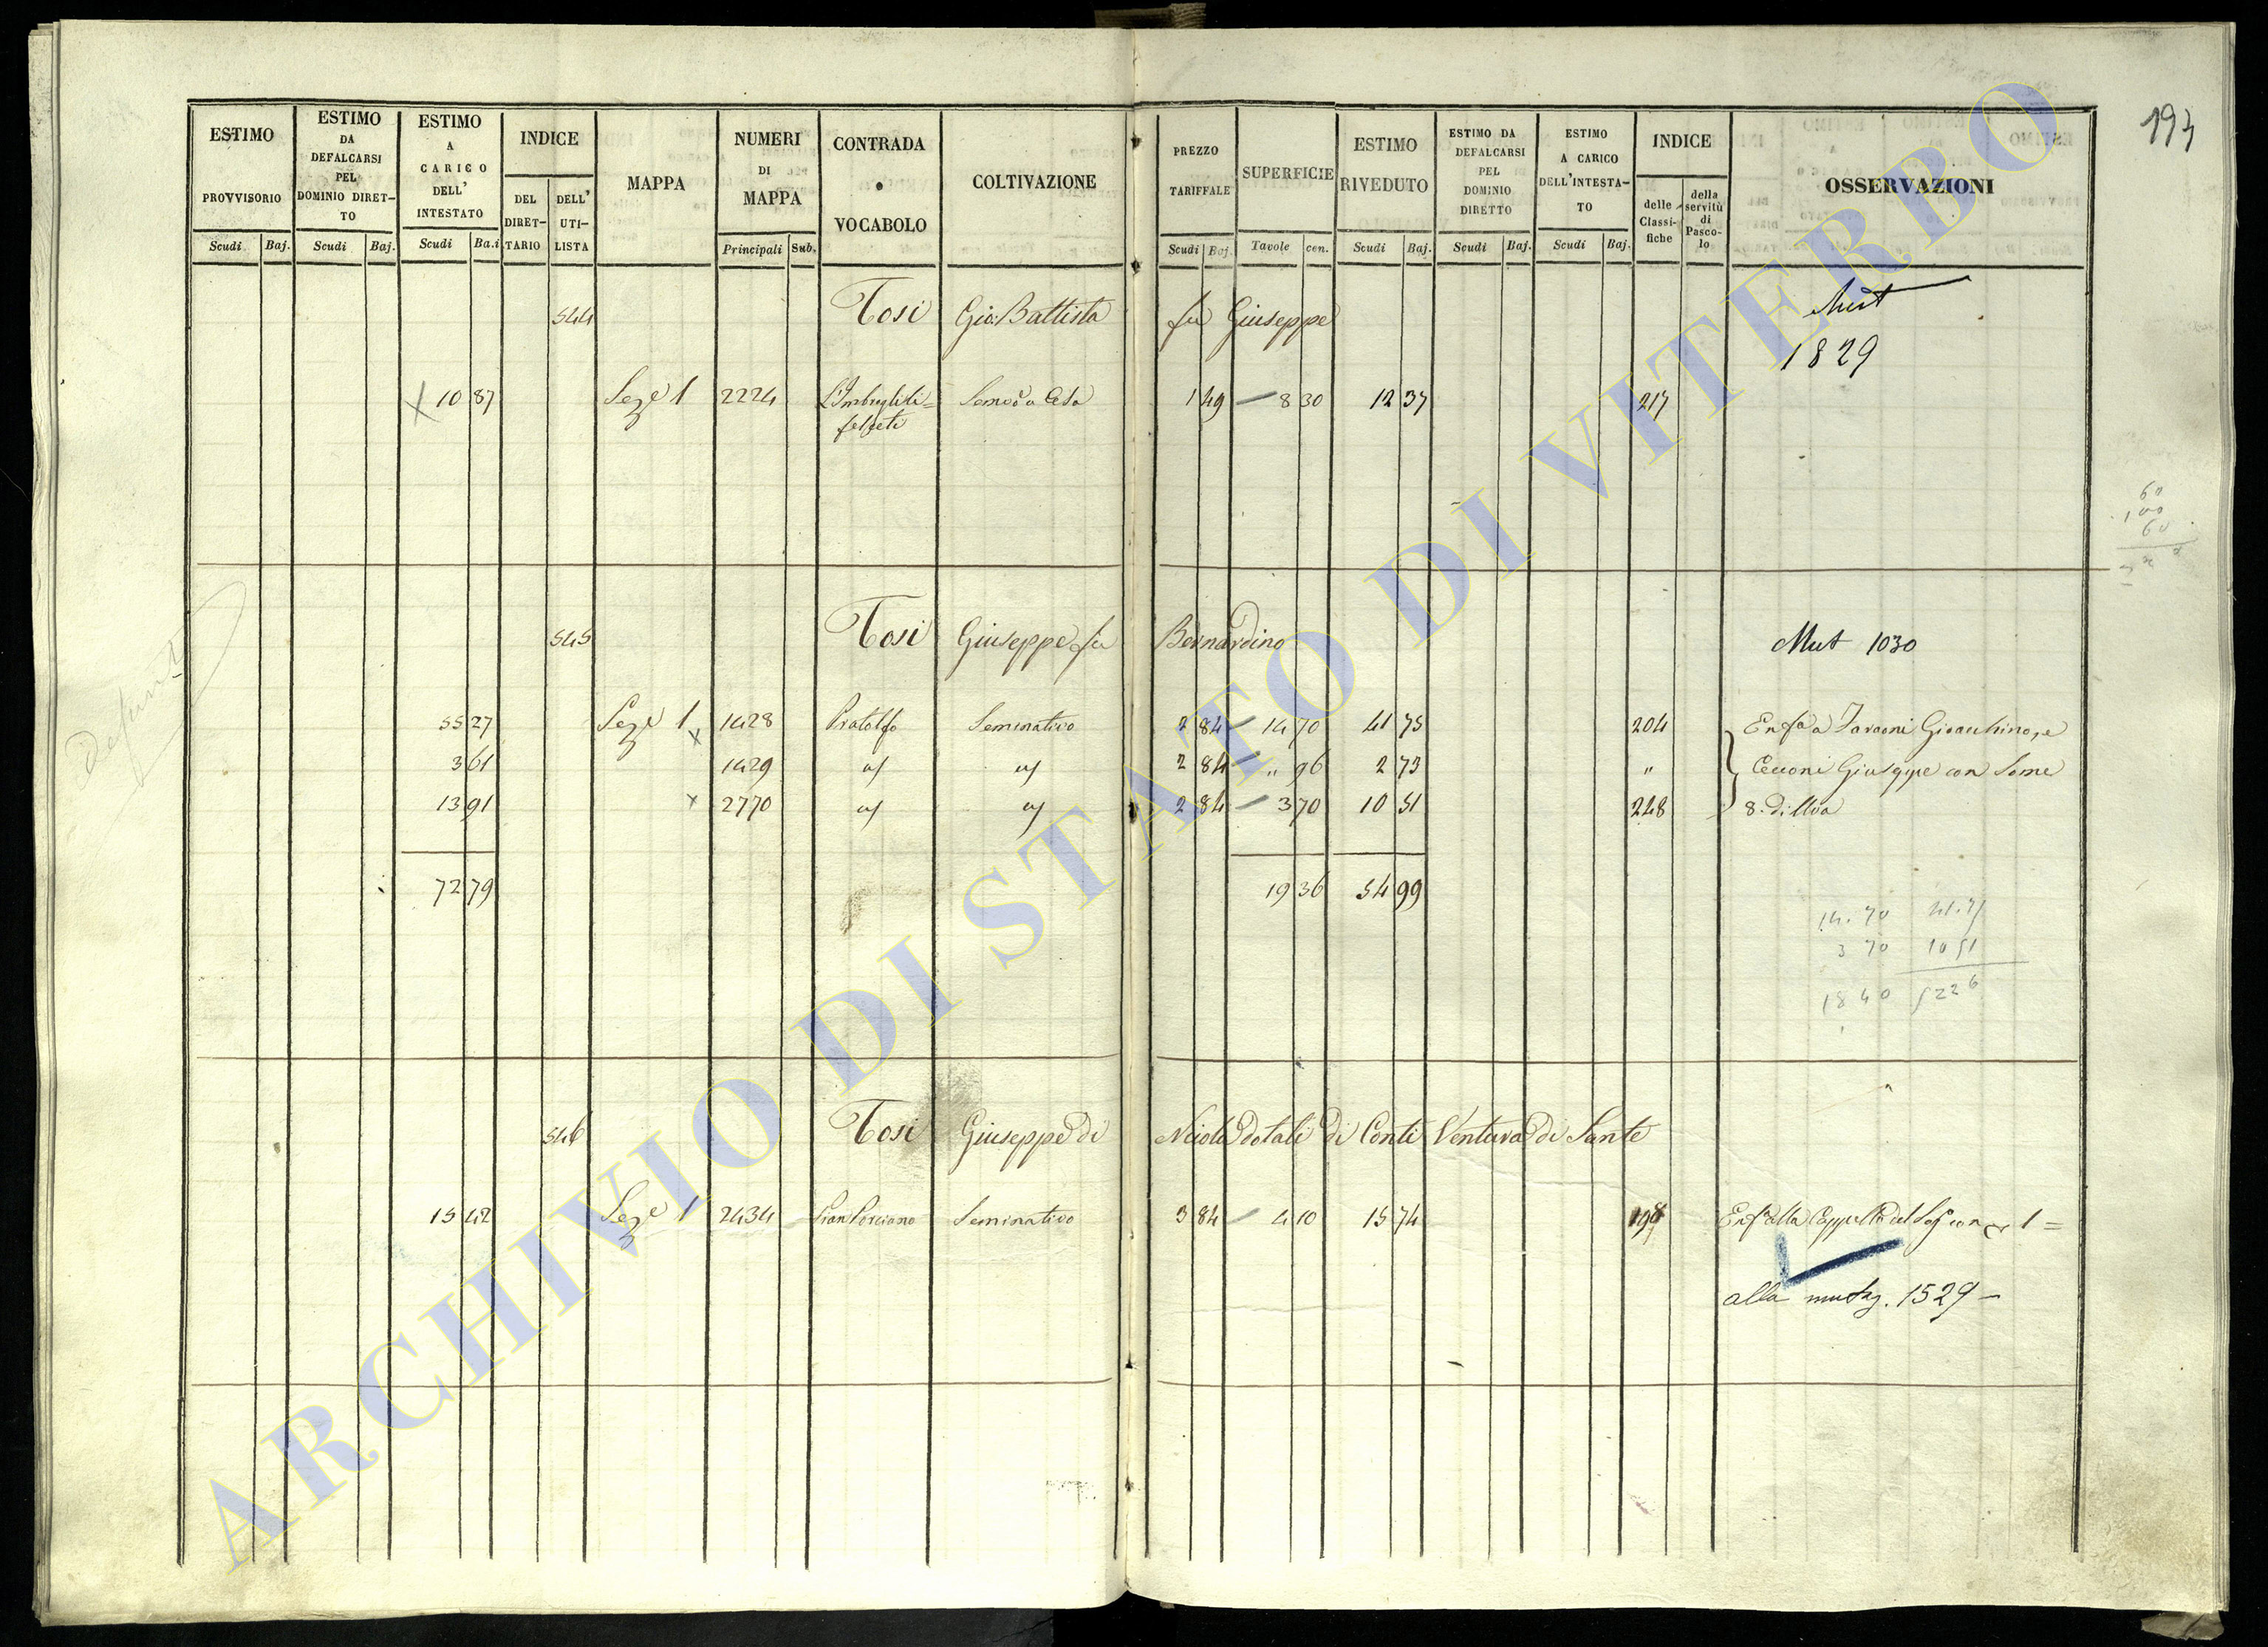 194
ESTIMO PROVVISORIO Scudi Baj.
ESTIMO DA DEFALCARSI PEL DOMINIO DIRET-TO Scudi Baj.
ESTIMO A CARICO DELL' INTESTATO Scudi Ba.i
INDICE DEL DIRET-TARIO DELL' UTI-LISTA
MAPPA
NUMERI DI MAPPA Principali Sub.
CONTRADA o VOCABOLO
COLTIVAZIONE
PREZZO TARIFFALE Scudi Baj.
SUPERFICIE Tavole cen.
ESTIMO RIVEDUTO Scudi Baj.
ESTIMO DA DEFALCARSI PEL DOMINIO DIRETTO Scudi Baj.
ESTIMO A CARICO DELL'INTESTA-TO Scudi Baj.
INDICE delle Classi-fiche della servitù di Pasco-lo
OSSERVAZIONI
544 Tosi Gio: Battista fu Giuseppe Mut
1829
10 87 Seze 1 2224 1 49 8 30 12 37 217
60
100
60
545 Tosi Giuseppe fu Bernardino Mut 1030
55 27 Seze 1 1428 Seminativo 2 84 14 70 41 75 204 Giovacchino, e
3 61 1429 2 84 " 96 2 73 " Cecconi Giuseppe con Some
13 91 2770 2 84 3 70 10 51 248 8. di
72 79 19 36 54 99
14. 70 41. 75
3 70 10 51
18 40 52 26
546 Tosi Giuseppe di dotali di Conti Ventura di Sante
15 42 Seze 1 2434 Pian Porciano Seminativo 3 84 4 10 15 74 198 1 =
alla mutaz. 1529 –
ARCHIVIO DI STATO DI VITERBO